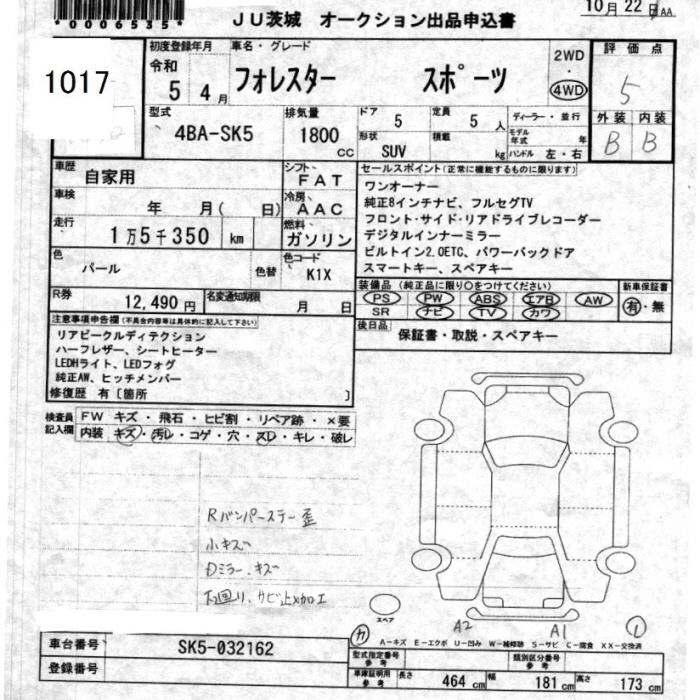 *0006535*
JU茨城 オークション出品申込書
10月22日 AA
1017
初度登録年月 車名・グレード
令和 5 4月
フォレスター スポーツ
2WD・4WD
評価点
5
外装 内装
B B
型式 4BA-SK5
排気量 1800 cc
ドア 5
形状 SUV
定員 5 人
積載 kg
ディーラー・並行
モデル年式 年
ハンドル 左・右
車歴 自家用
シフト FAT
車検 年 月( 日)
冷房 AAC
走行 1万5千350 km
燃料 ガソリン
色 パール 色替
色コード K1X
R券 12,490円
名変通知期限 月 日
セールスポイント(正常に機能するものに限ります)
ワンオーナー
純正8インチナビ、フルセグTV
フロント・サイド・リアドライブレコーダー
デジタルインナーミラー
ビルトイン2.0ETC、パワーバックドア
スマートキー、スペアキー
装備品(純正品に限り○をつけてください)
PS PW ABS エアB AW
SR ナビ TV カワ
新車保証書
有・無
後日品 保証書・取説・スペアキー
注意事項申告欄(不具合内容等は具体的に記入して下さい)
リアビークルディテクション
ハーフレザー、シートヒーター
LEDHライト、LEDフォグ
純正AW、ヒッチメンバー
修復歴 有〔箇所 〕
検査員記入欄
FW キズ・飛石・ヒビ割・リペア跡・×要
内装 キズ・汚レ・コゲ・穴・スレ・キレ・破レ
Rバンパーステー歪
小キズ
Dミラー、キズ
下廻り、サビ止メ加工
スペア
A2 A1
A-キズ E-エクボ U-凹み W-補修跡 S-サビ C-腐食 XX-交換済
車台番号 SK5-032162
登録番号
型式指定番号 参考
類別区分番号 参考
車庫証明用 参考
長さ 464 cm 幅 181 cm 高さ 173 cm